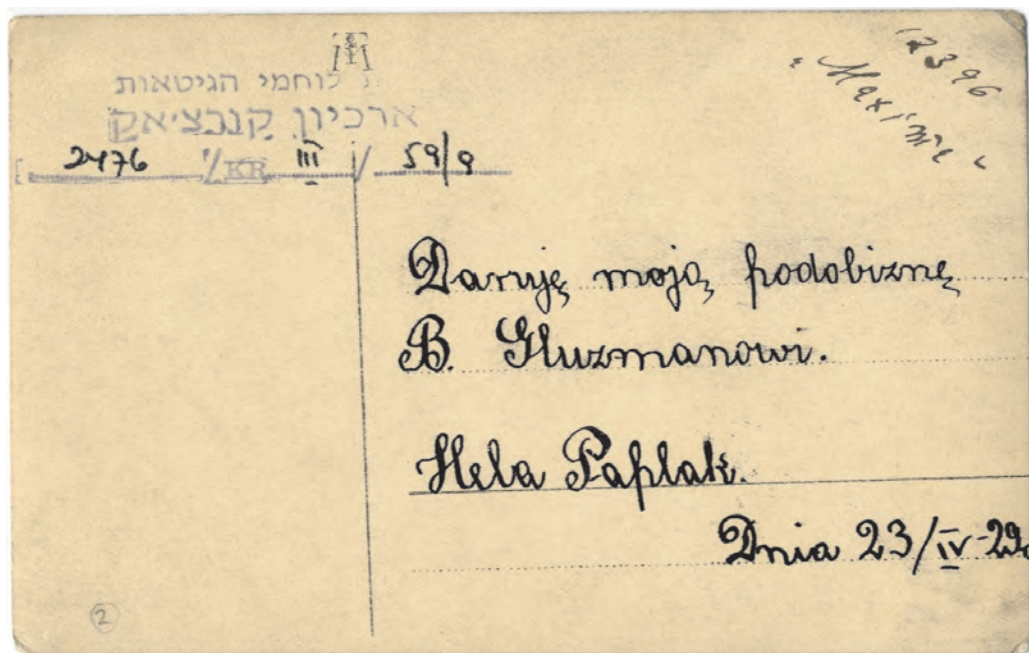 לוחמי הגיטאות
ארכיון קנצ'יאק
2476 / KR III / 59/9
12396
"Maxime"
Daruję moją podobiznę
B. Gluzmanowi.
Hela Paplak.
Dnia 23/IV-29.
2